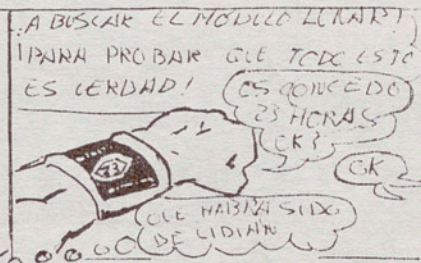 ¡A BUSCAR EL MÓDULO LUNAR!
¡PARA PROBAR QUE TODO ESTO
ES VERDAD!
OS CONCEDO
23 HORAS
OK?
OK
23
QUE HABRA SIDO
DE LIDIAN